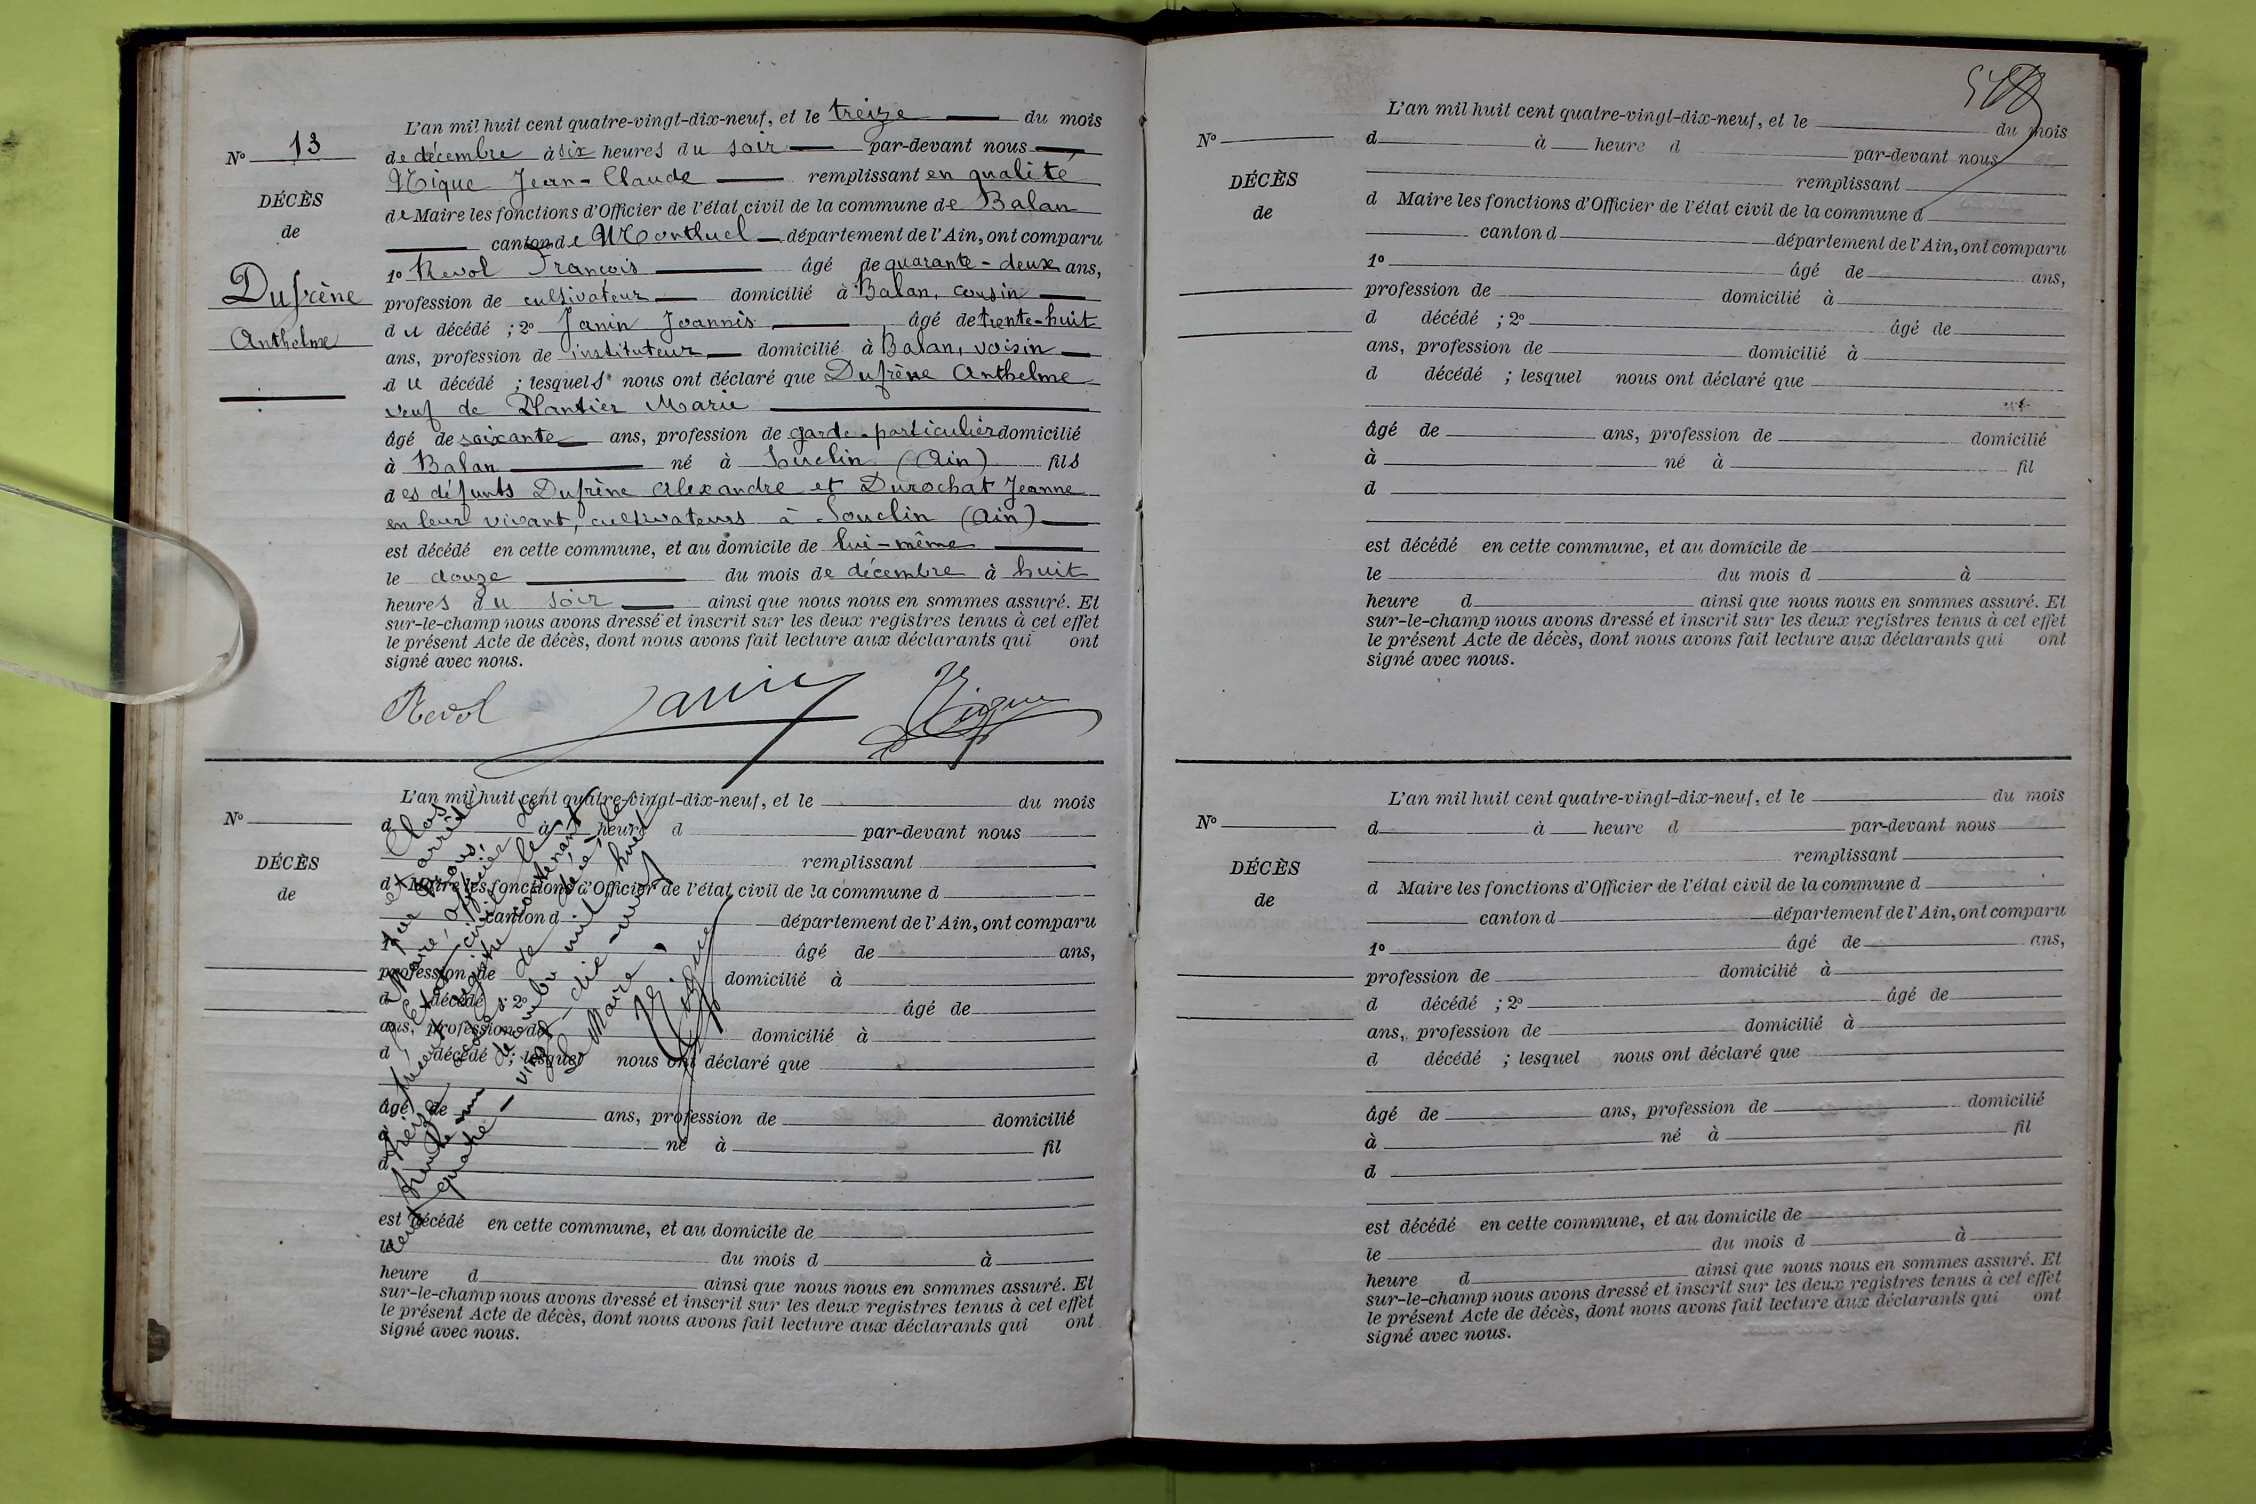 L'an mil huit cent quatre-vingt-dix-neuf, et le treize du mois
de décembre à six heures du soir par-devant nous
Nique Jean-Claude remplissant en qualité
de Maire les fonctions d'Officier de l'état civil de la commune de Balan
canton de Montluel département de l'Ain, ont comparu
1o Revol François âgé de quarante-deux ans,
profession de cultivateur domicilié à Balan, cousin
du décédé ; 2o Janin Joannès âgé de trente-huit
ans, profession de instituteur domicilié à Balan, voisin
du décédé ; lesquels nous ont déclaré que Dufrène Anthelme
veuf de Plantier Marie
âgé de soixante ans, profession de garde-particulier domicilié
à Balan né à Souclin (Ain) fils
des défunts Dufrène Alexandre et Durochat Jeanne
en leur vivant, cultivateurs à Souclin (Ain)
est décédé en cette commune, et au domicile de lui-même
le douze du mois de décembre à huit
heures du soir ainsi que nous nous en sommes assuré. Et
sur-le-champ nous avons dressé et inscrit sur les deux registres tenus à cet effet
le présent Acte de décès, dont nous avons fait lecture aux déclarants qui ont
signé avec nous.
Revol Janin Nique
No 13
DÉCÈS
de
Dufrène
Anthelme
No
DÉCÈS
de
L'an mil huit cent quatre-vingt-dix-neuf, et le du mois
d à heure d par-devant nous
remplissant
d Maire les fonctions d'Officier de l'état civil de la commune d
canton d département de l'Ain, ont comparu
1o âgé de ans,
profession de domicilié à
d décédé ; 2o âgé de
ans, profession de domicilié à
d décédé ; lesquel nous ont déclaré que
âgé de ans, profession de domicilié
à né à fil
d
est décédé en cette commune, et au domicile de
le du mois d à
heure d ainsi que nous nous en sommes assuré. Et
sur-le-champ nous avons dressé et inscrit sur les deux registres tenus à cet effet
le présent Acte de décès, dont nous avons fait lecture aux déclarants qui ont
signé avec nous.
Clos
et arrêté
par nous,
Maire, officier de
l'état civil le
présent registre contenant
treize actes de décès, le
trente-un décembre mil huit
cent quatre-vingt-dix-neuf
Le Maire.
Nique
No
DÉCÈS
de
L'an mil huit cent quatre-vingt-dix-neuf, et le du mois
d à heure d par-devant nous
remplissant
d Maire les fonctions d'Officier de l'état civil de la commune d
canton d département de l'Ain, ont comparu
1o âgé de ans,
profession de domicilié à
d décédé ; 2o âgé de
ans, profession de domicilié à
d décédé ; lesquel nous ont déclaré que
âgé de ans, profession de domicilié
à né à fil
d
est décédé en cette commune, et au domicile de
le du mois d à
heure d ainsi que nous nous en sommes assuré. Et
sur-le-champ nous avons dressé et inscrit sur les deux registres tenus à cet effet
le présent Acte de décès, dont nous avons fait lecture aux déclarants qui ont
signé avec nous.
No
DÉCÈS
de
L'an mil huit cent quatre-vingt-dix-neuf, et le du mois
d à heure d par-devant nous
remplissant
d Maire les fonctions d'Officier de l'état civil de la commune d
canton d département de l'Ain, ont comparu
1o âgé de ans,
profession de domicilié à
d décédé ; 2o âgé de
ans, profession de domicilié à
d décédé ; lesquel nous ont déclaré que
âgé de ans, profession de domicilié
à né à fil
d
est décédé en cette commune, et au domicile de
le du mois d à
heure d ainsi que nous nous en sommes assuré. Et
sur-le-champ nous avons dressé et inscrit sur les deux registres tenus à cet effet
le présent Acte de décès, dont nous avons fait lecture aux déclarants qui ont
signé avec nous.